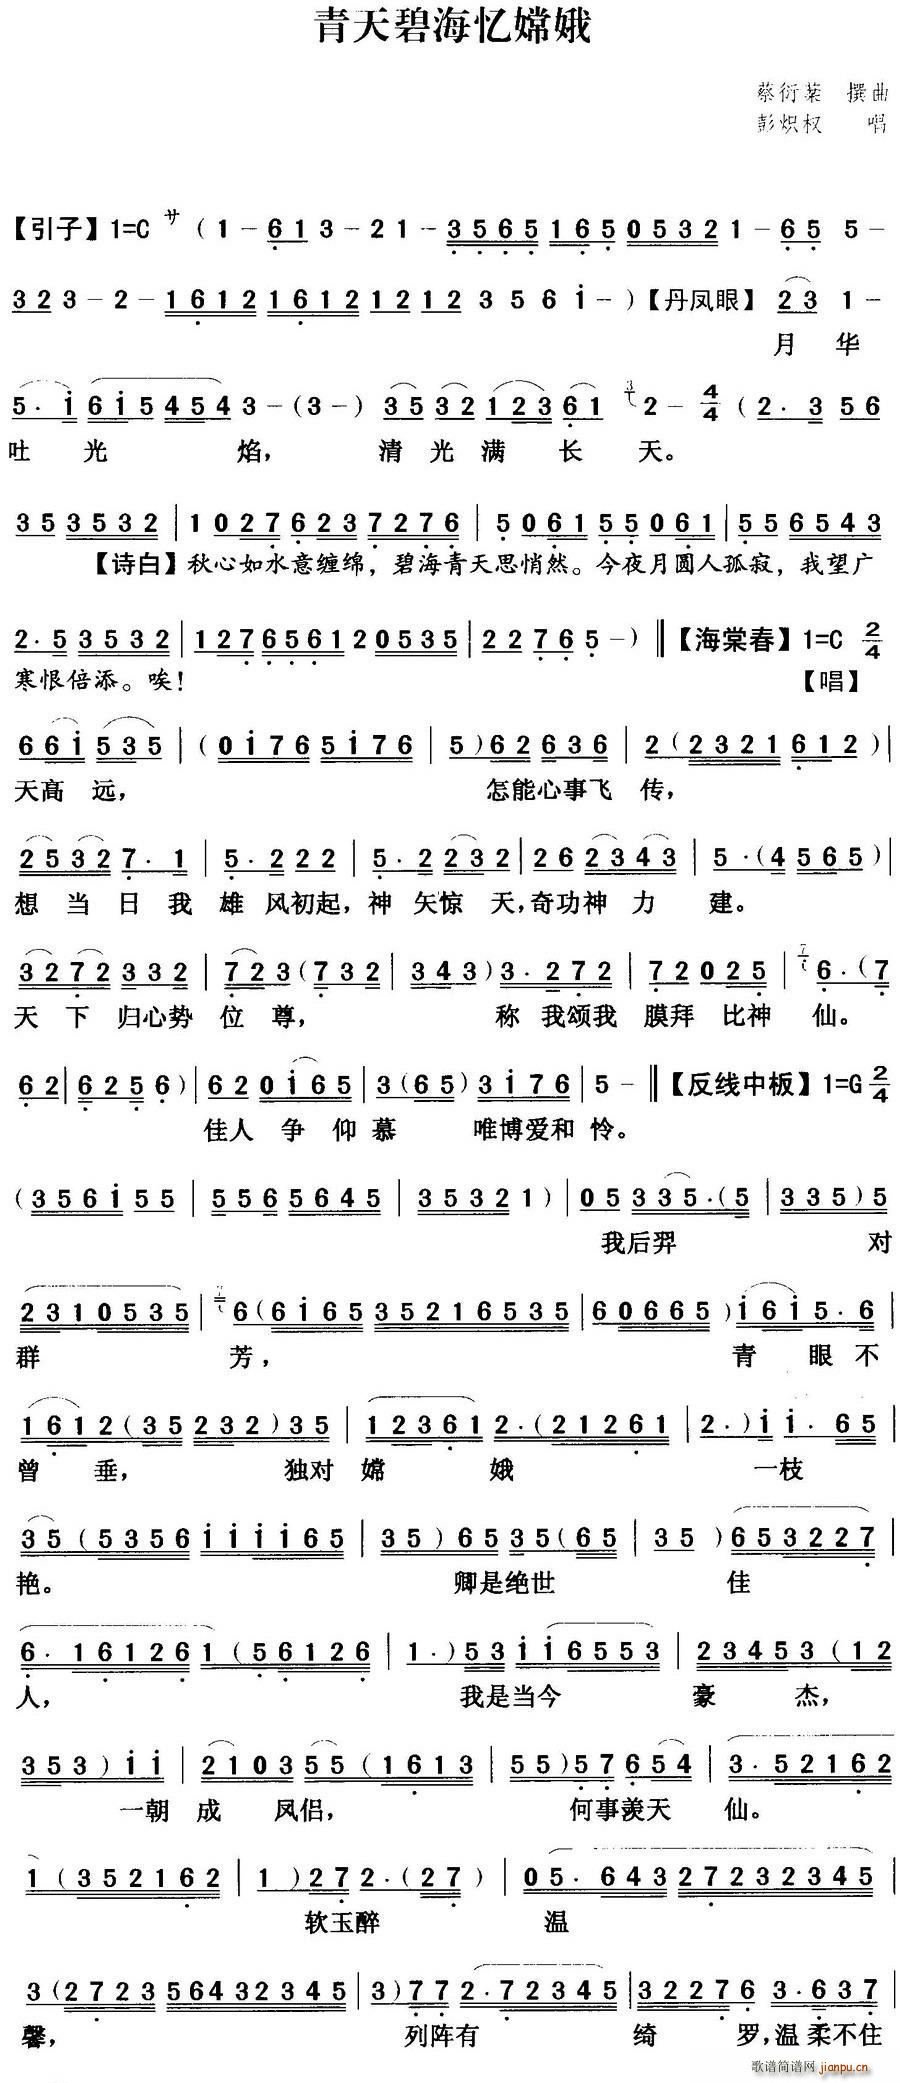 青天碧海忆嫦娥
蔡衍棻 撰曲
彭炽权 唱
【引子】1=C サ (1 - 6 1 3 - 2 1 - 3 5 6 5 1 6 5 0 5 3 2 1 - 6 5 5 -
3 2 3 - 2 - 1 6 1 2 1 6 1 2 1 2 1 2 3 5 6 i -) 【丹凤眼】 2 3 1 -
月 华
5 . i 6 i 5 4 5 4 3 - (3 -) 3 5 3 2 1 2 3 6 1 2 - 4/4 (2 . 3 5 6
吐 光 焰， 清 光 满 长 天。
3 5 3 5 3 2 | 1 0 2 7 6 2 3 7 2 7 6 | 5 0 6 1 5 5 0 6 1 | 5 5 6 5 4 3
【诗白】秋心如水意缠绵，碧海青天思悄然。今夜月圆人孤寂，我望广
2 . 5 3 5 3 2 | 1 2 7 6 5 6 1 2 0 5 3 5 | 2 2 7 6 5 -) ‖【海棠春】1=C 2/4
寒恨倍添。唉！ 【唱】
6 6 i 5 3 5 | (0 i 7 6 5 i 7 6 | 5) 6 2 6 3 6 | 2 (2 3 2 1 6 1 2) |
天高 远， 怎能心事飞 传，
2 5 3 2 7 . 1 | 5 . 2 2 2 | 5 . 2 2 3 2 | 2 6 2 3 4 3 | 5 . (4 5 6 5) |
想 当 日 我 雄 风初起，神 矢惊 天，奇功神 力 建。
3 2 7 2 3 3 2 | 7 2 3 (7 3 2 | 3 4 3) 3 . 2 7 2 | 7 2 0 2 5 | 6 . (7
天 下 归心势 位 尊， 称 我颂我 膜拜 比神 仙。
6 2 | 6 2 5 6) | 6 2 0 i 6 5 | 3 (6 5) 3 i 7 6 | 5 - ‖【反线中板】1=G 2/4
佳人 争 仰 慕 唯博爱和 怜。
(3 5 6 i 5 5 | 5 5 6 5 6 4 5 | 3 5 3 2 1) | 0 5 3 3 5 . (5 | 3 3 5) 5
我后羿 对
2 3 1 0 5 3 5 | 6 (6 i 6 5 3 5 2 1 6 5 3 5 | 6 0 6 6 5) i 6 i 5 . 6 |
群 芳， 青 眼 不
1 6 1 2 (3 5 2 3 2) 3 5 | 1 2 3 6 1 2 . (2 1 2 6 1 | 2 .) i i . 6 5 |
曾 垂， 独对 嫦 娥 一枝
3 5 (5 3 5 6 i i i i 6 5 | 3 5) 6 5 3 5 (6 5 | 3 5) 6 5 3 2 2 7 |
艳。 卿是绝世 佳
6 . 1 6 1 2 6 1 (5 6 1 2 6 | 1 .) 5 3 i i 6 5 5 3 | 2 3 4 5 3 (1 2
人， 我是当今 豪 杰，
3 5 3) i i | 2 1 0 3 5 5 (1 6 1 3 | 5 5) 5 7 6 5 4 | 3 . 5 2 1 6 2
一朝 成 凤侣， 何事羡天 仙。
1 (3 5 2 1 6 2 | 1) 2 7 2 . (2 7) | 0 5 . 6 4 3 2 7 2 3 2 3 4 5 |
软玉醉 温
3 (2 7 2 3 5 6 4 3 2 3 4 5 | 3) 7 7 2 . 7 2 3 4 5 | 3 2 2 7 6 3 . 6 3 7 |
馨， 列阵有 绮 罗，温 柔不住
歌谱简谱网 jianpu.cn